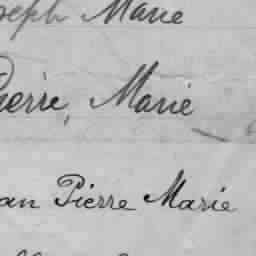 oseph Marie
Pierre, Marie
an Pierre Marie